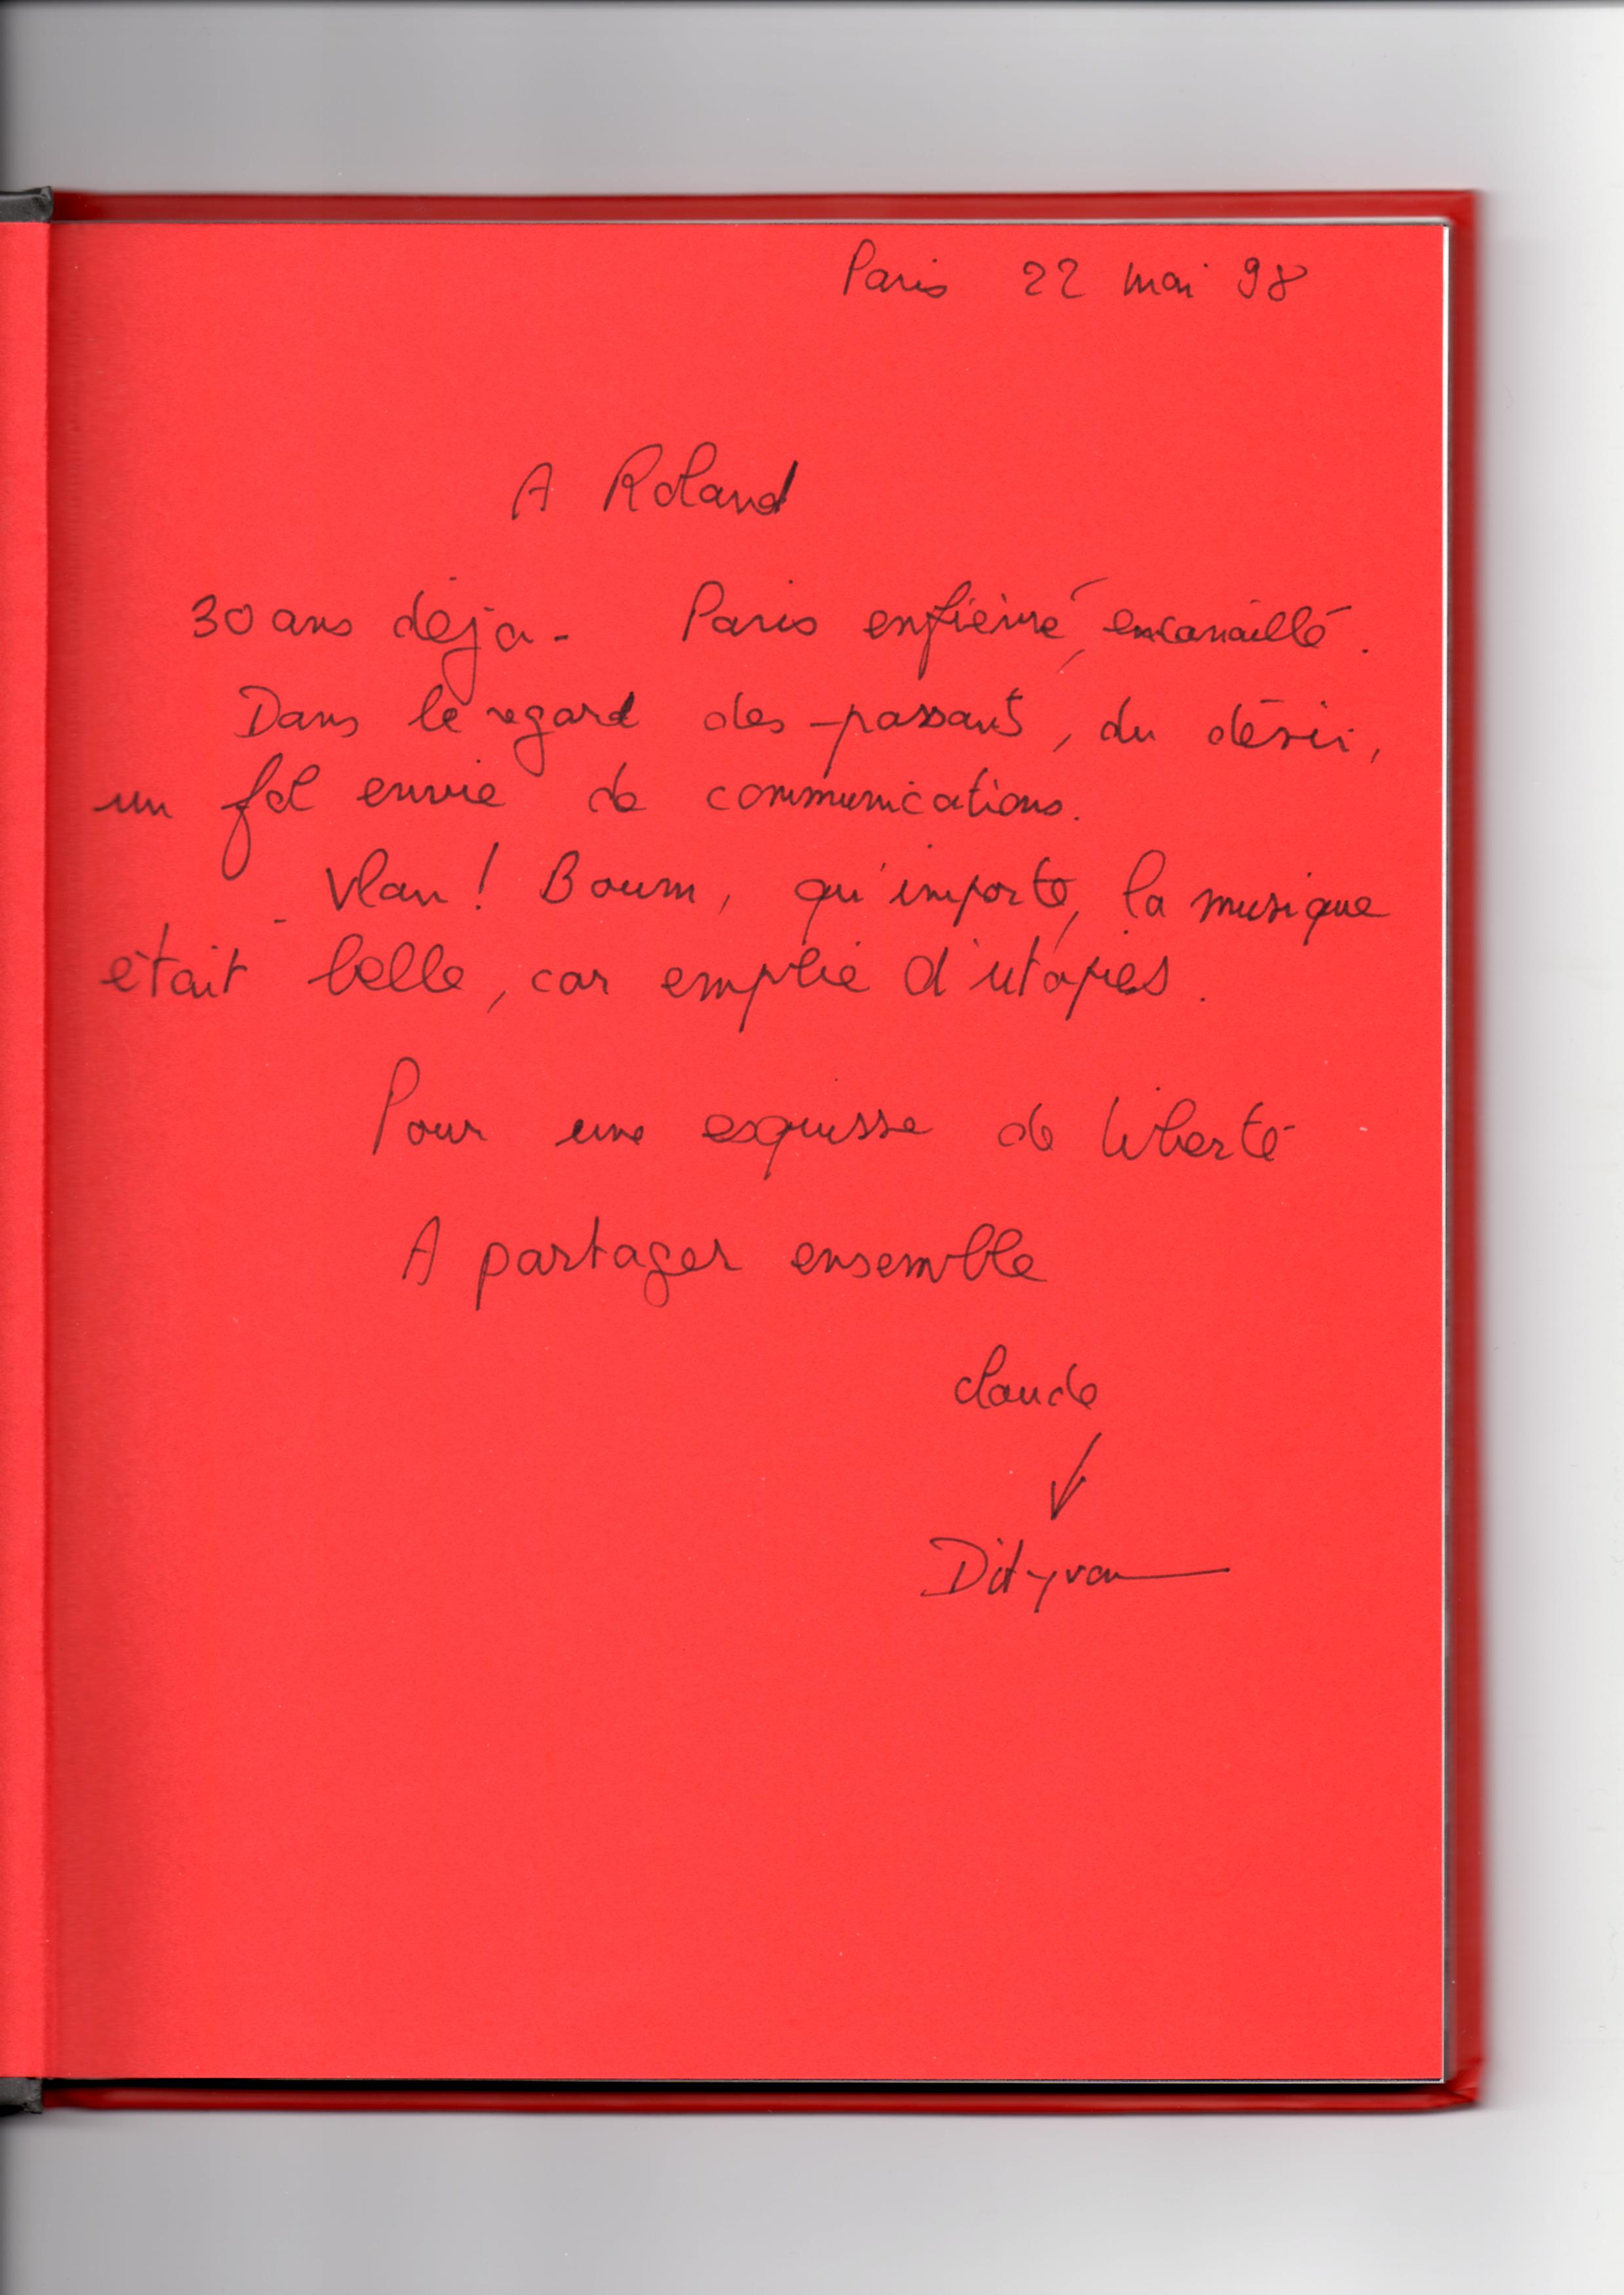 Paris 22 mai 98
A Roland
30 ans déjà - Paris enfiévré, encanaillé.
Dans le regard des passants, du désir,
un fol envie de communications.
Vlan ! Boum, qu'importe, la musique
était belle, car emplie d'utopies.
Pour une esquisse de liberté
A partager ensemble
Claude
Dityvon